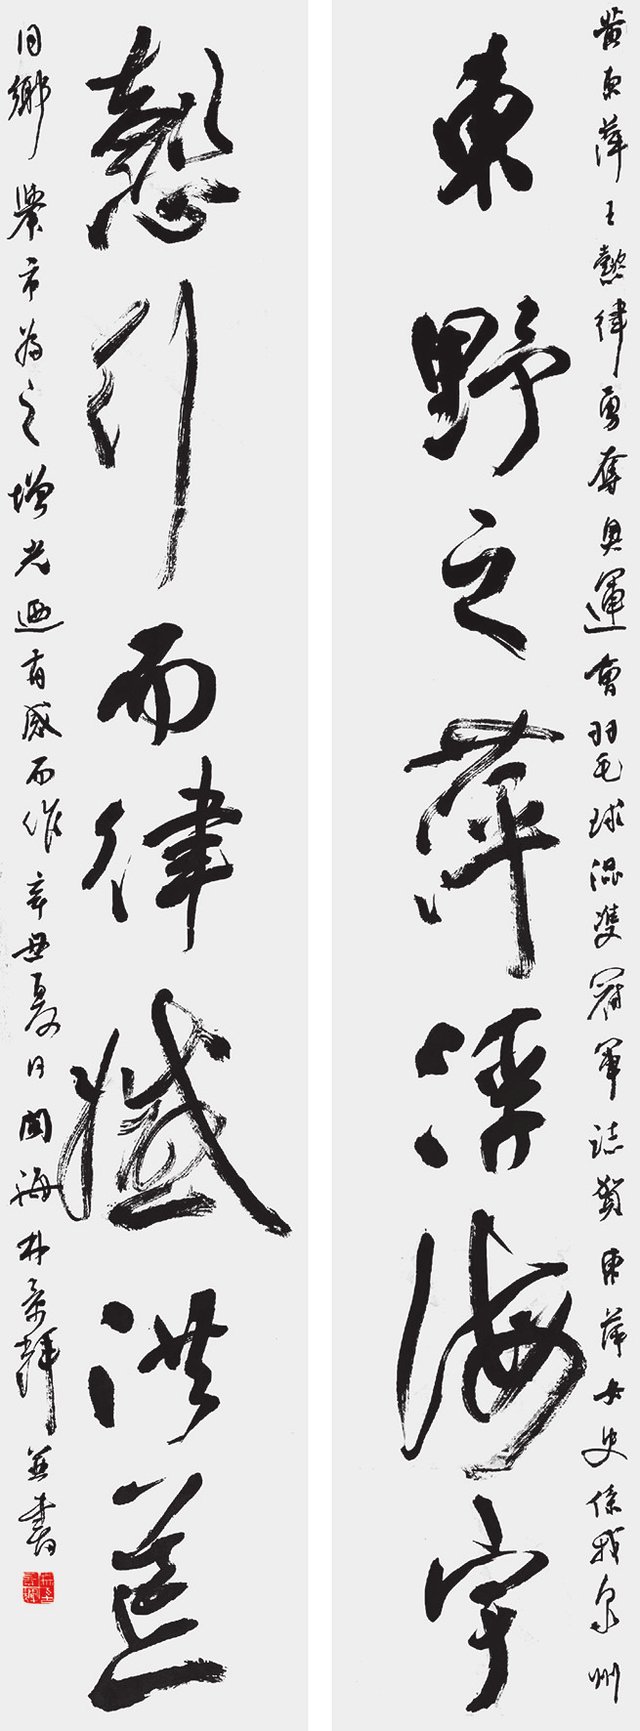 黃東萍王懿律勇奪奧運會羽毛球混雙冠軍誌賀東萍女史係我泉州
東野之萍浮海宇
懿行而律洪
同鄉舉市為之增光迺有感而作辛丑夏日閩海林景輝並書